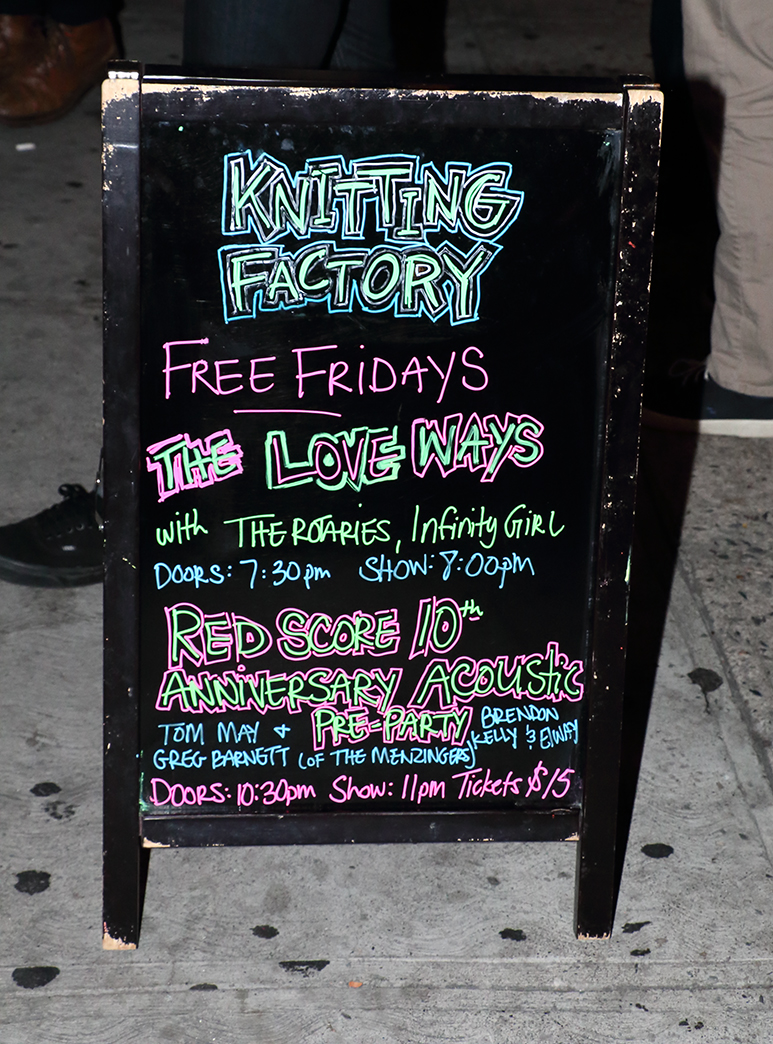 KNITTING
FACTORY
FREE FRIDAYS
THE LOVE WAYS
with THE ROTARIES, Infinity GIRL
DOORS: 7:30pm SHOW: 8:00pm
RED SCORE 10th
ANNIVERSARY ACOUSTIC
PRE-PARTY
TOM MAY +
GREG BARNETT (OF THE MENZINGERS)
BRENDON
KELLY & ElWAY
DOORS: 10:30pm Show: 11pm Tickets $15